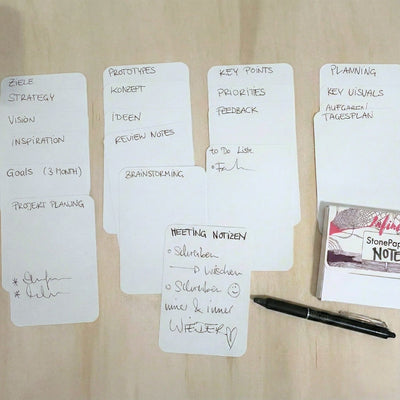 ZIELE
STRATEGY
VISION
INSPIRATION
GOALS (3 MONTH)
PROJEKT PLANUNG
PROTOTYPES
KONZEPT
IDEEN
REVIEW NOTES
BRAINSTORMING
KEY POINTS
PRIORITIES
FEEDBACK
to Do Liste
PLANNING
KEY VISUALS
AUFGABEN
TAGESPLAN
MEETING NOTIZEN
Schreiben
→ Wischen
Schreiben ☺
immer & immer
WIEDER ♡
StonePap
NOTE